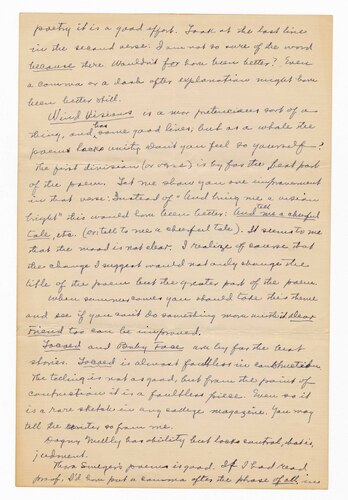 poetry it is a good effort. Look at the last line
in the second verse. I am not so sure of the word
because there. Wouldn't for have been better? Even
a comma or a dash after explanation might have
been better still.
Wind Visions is a more pretencious sort of a
thing, and has some good lines, but as a whole the
poem lacks unity. Don't you feel so yourself?
The first division (or verse) is by far the best part
of the poem. Let me show you one improvement
in that verse. Instead of "And bring me a vision
bright" this would have been better: And tell me a cheerful
tale, etc. (or, tell to me a cheerful tale). It seems to me
that the mood is not clear. I realize of course that
the change I suggest would not only change the
title of the poem but the greater part of the poem.
When summer comes you should take this theme
and see if you can't do something more with it.
Friend too can be improved.
and Baby Face are by far the best
stories. is almost faultless in construction.
The telling is not as good, but from the point of
construction it is a faultless piece. Even so it
is a rare sketch in any college magazine. You may
tell the writer so from me.
Dagny has ability but lacks control, that is,
judgment.
poems is good. If I had read
proof, I'd have put a comma after the phrase of all, in